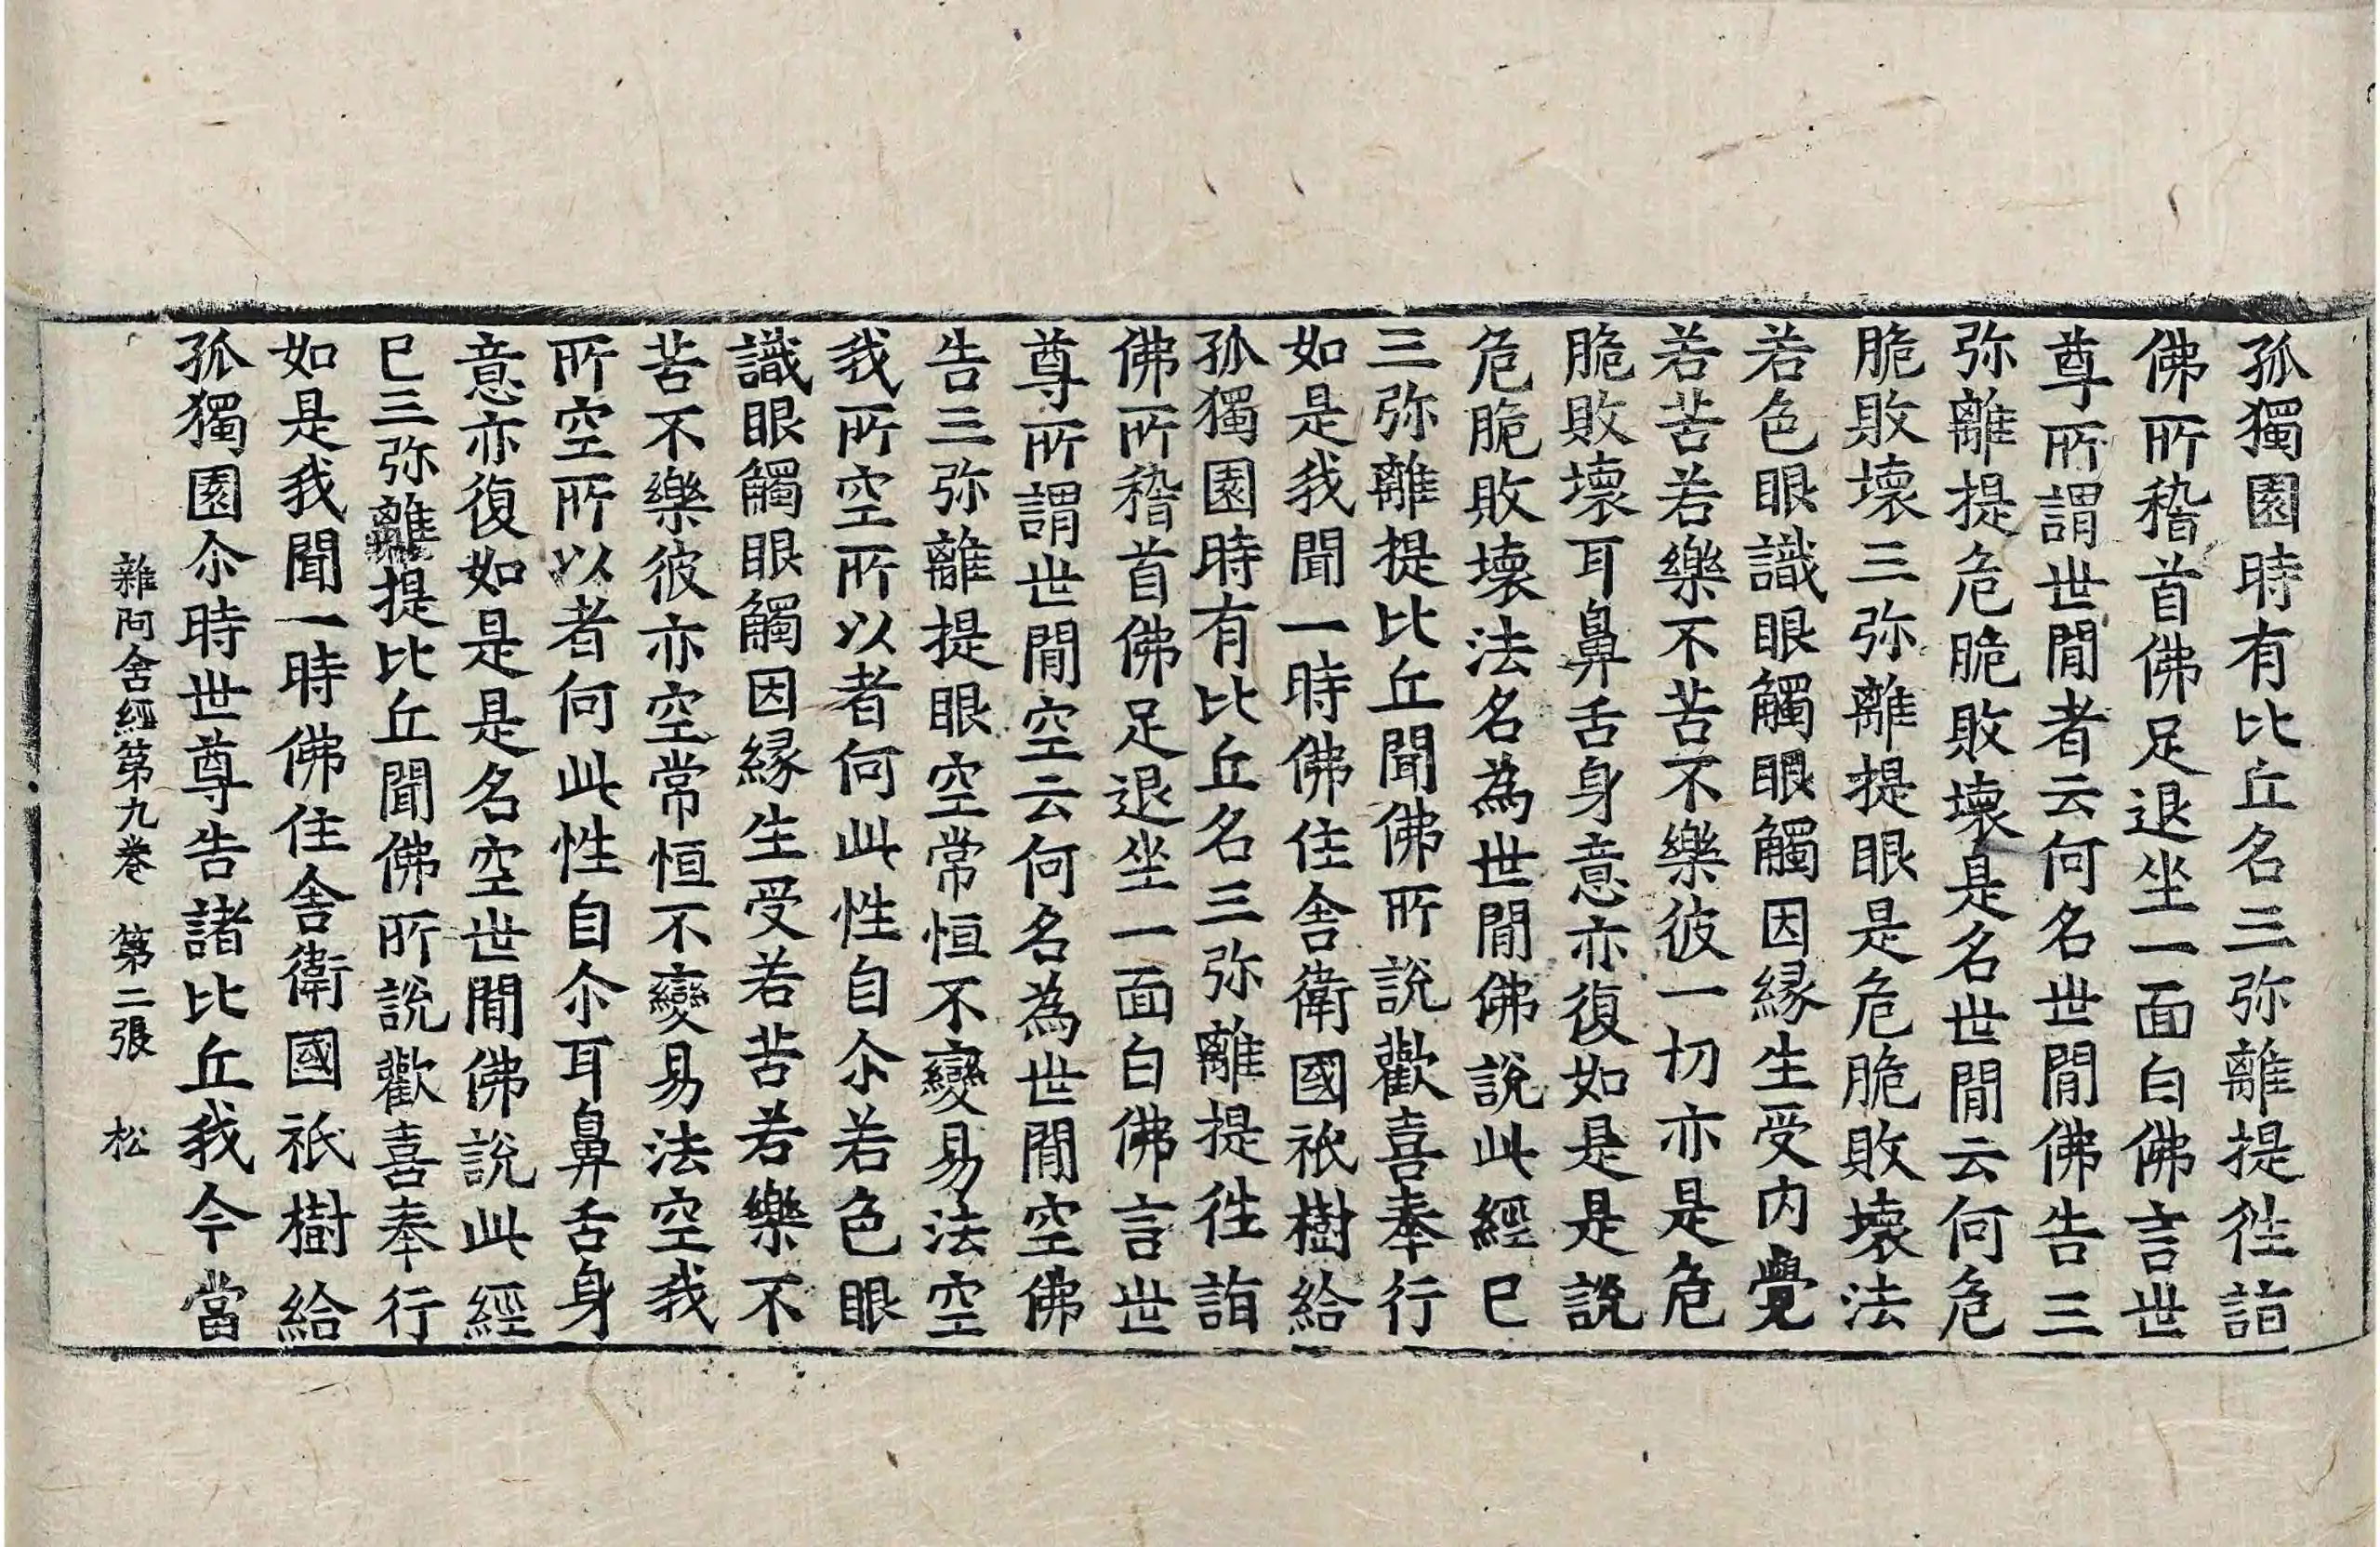 孤獨園時有比丘名三弥離提徃詣
佛所稽首佛足退坐一面白佛言世
尊所謂世閒者云何名世閒佛告三
弥離提危脆敗壞是名世閒云何危
脆敗壞三弥離提眼是危脆敗壞法
若色眼識眼觸眼觸因緣生受內覺
若苦若樂不苦不樂彼一切亦是危
脆敗壞耳鼻舌身意亦復如是是說
危脆敗壞法名為世閒佛說此經已
三弥離提比丘聞佛所說歡喜奉行
如是我聞一時佛住舍衛國祇樹給
孤獨園時有比丘名三弥離提徃詣
佛所稽首佛足退坐一面白佛言世
尊所謂世閒空云何名為世閒空佛
告三弥離提眼空常恒不變易法空
我所空所以者何此性自尒若色眼
識眼觸眼觸因緣生受若苦若樂不
苦不樂彼亦空常恒不變易法空我
所空所以者何此性自尒耳鼻舌身
意亦復如是是名空世閒佛說此經
已三弥離提比丘聞佛所說歡喜奉行
如是我聞一時佛住舍衛國祇樹給
孤獨園尒時世尊告諸比丘我今當
雜阿含經第九卷 第二張 松